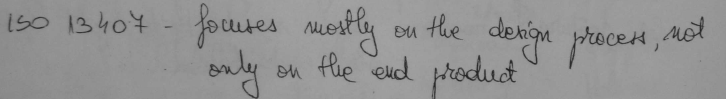 ISO 13407 - focuses mostly on the design process, not
only on the end product